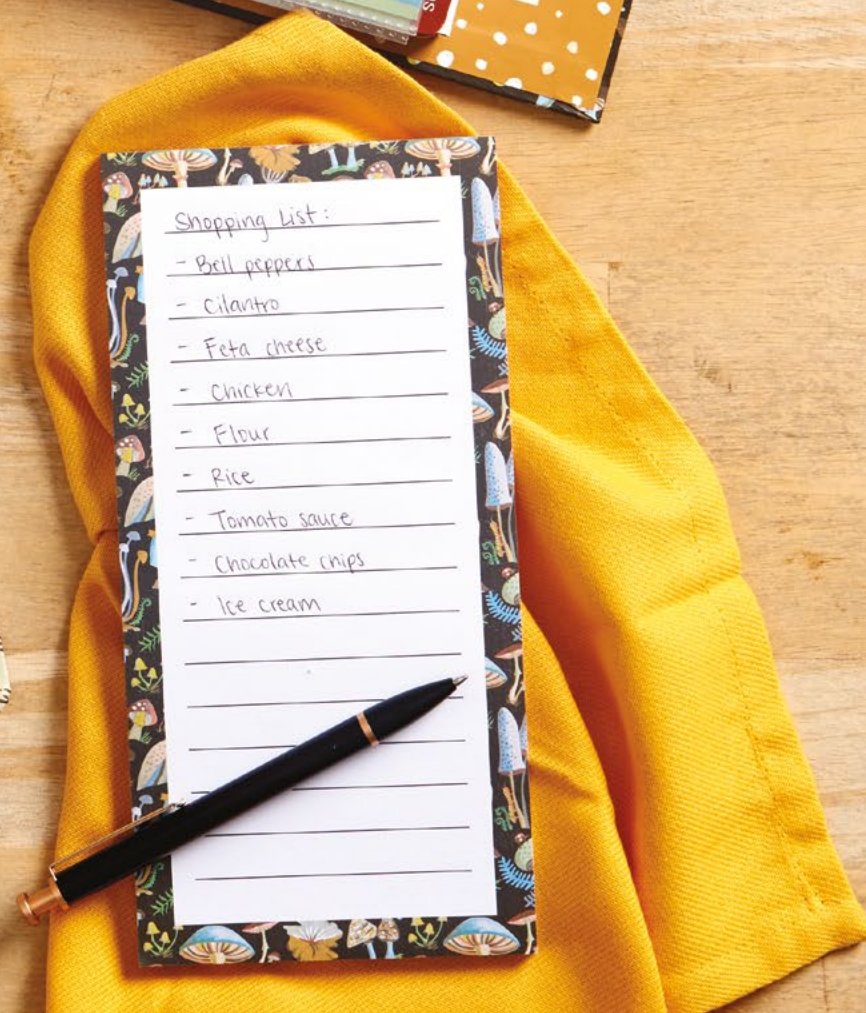 Shopping List:
- Bell peppers
- Cilantro
- Feta cheese
- Chicken
- Flour
- Rice
- Tomato sauce
- Chocolate chips
- Ice cream